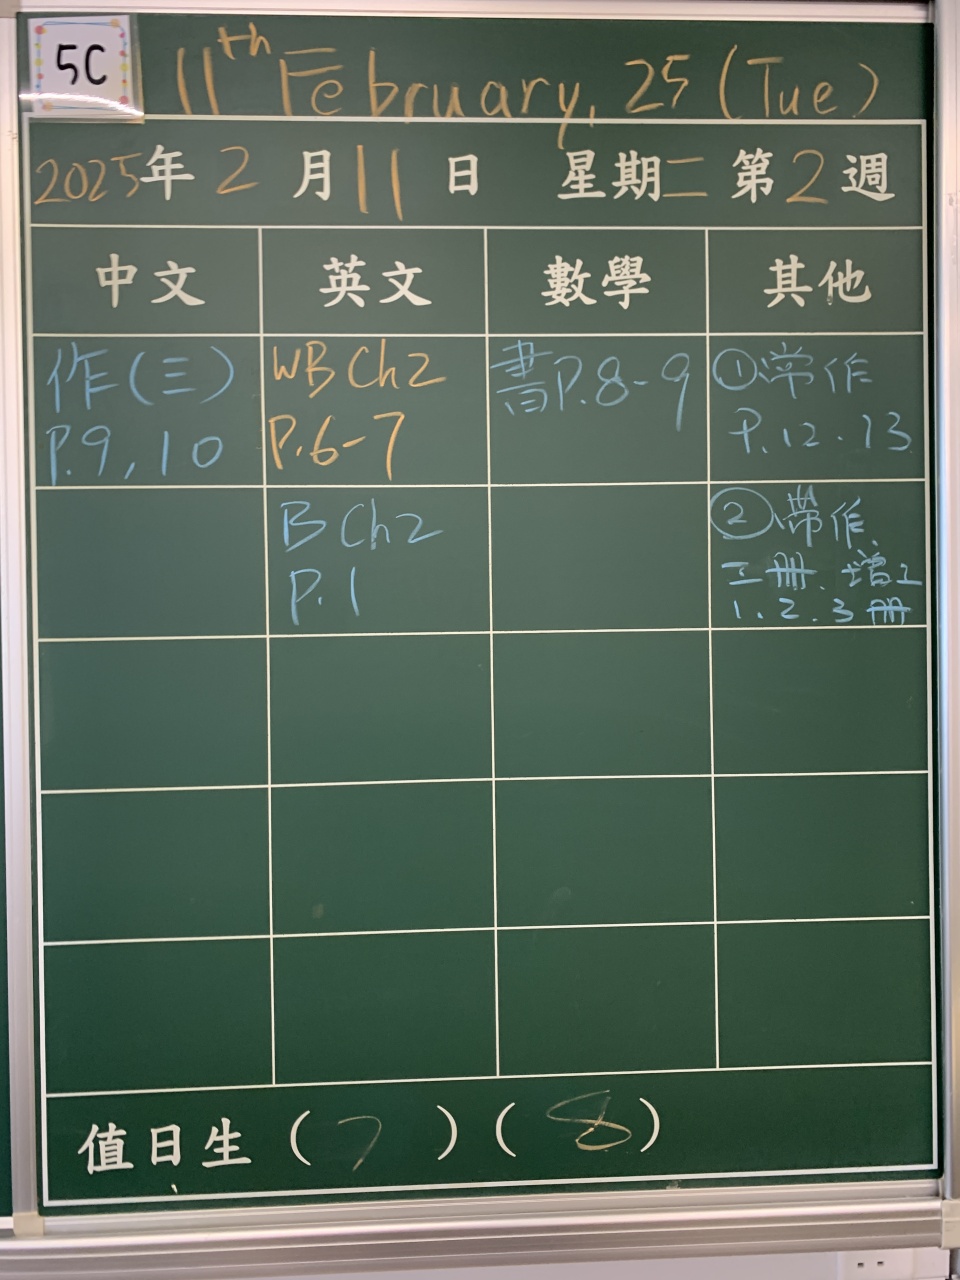 5C
11th February, 25 (Tue)
2025年2月11日 星期二 第2週
中文 英文 數學 其他
作(三)
P.9, 10
WB Ch2
P.6-7
書P.8-9
①常作
P.12.13
B Ch2
P.1
②帶作
工冊、增工
1.2.3冊
值日生 (7) (8)